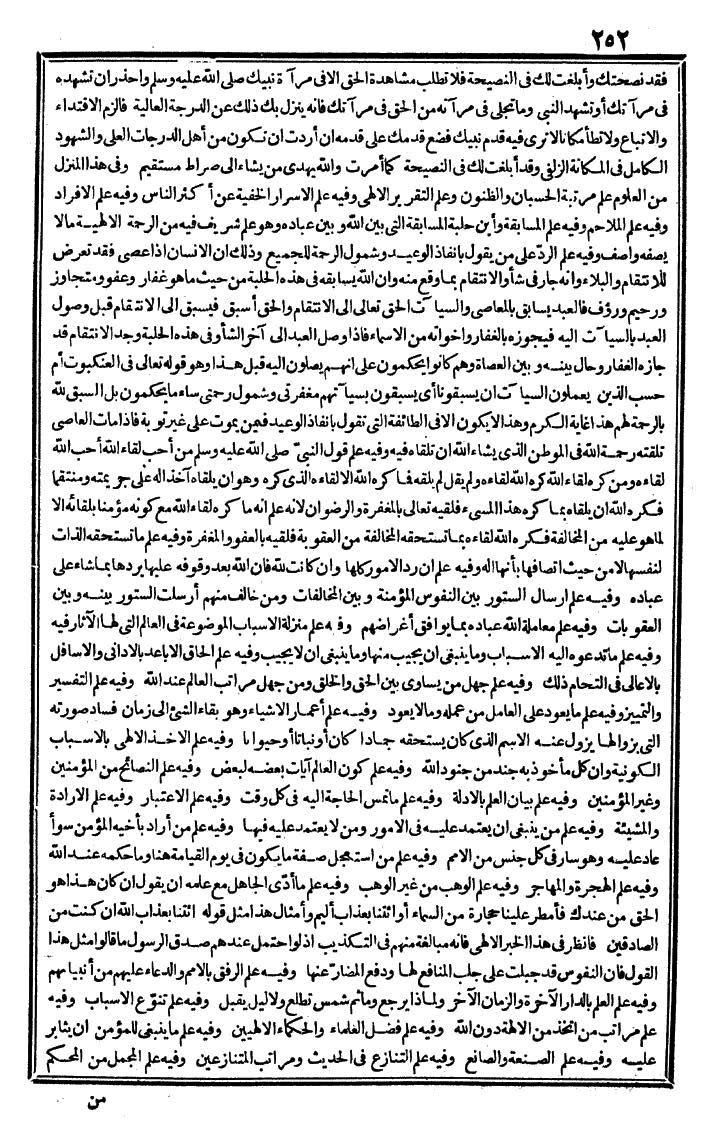 ٢٥٢
فقد نصحتك وأبلغت لك فى النصيحة فلا تطلب مشاهدة الحق الا فى مرآة نبيك صلى الله عليه وسلم واحذر ان تشهده
فى مرآتك أو تشهد النبى وما تجلى فى مرآته من الحق فى مرآتك فانه ينزل بك ذلك عن الدرجة العالية فالزم الاقتداء
والاتباع ولا تطأ مكانا لا ترى فيه قدم نبيك فضع قدمك على قدمه ان أردت ان تكون من أهل الدرجات العلى والشهود
الكامل فى المكانة الزلفى وقد أبلغت لك فى النصيحة كما أمرت والله يهدى من يشاء الى صراط مستقيم وفى هذا المنزل
من العلوم علم مرتبة الحسبان والظنون وعلم التقرير الالهى وفيه علم الاسرار الخفية عن أكثر الناس وفيه علم الافراد
وفيه علم الملاحم وفيه علم المسابقة وأين حلبة المسابقة التى بين الله وبين عباده وهو علم شريف فيه من الرحمة الالهية مالا
يصفه واصف وفيه علم الردّ على من يقول بانفاذ الوعيد وشمول الرحمة للجميع وذلك ان الانسان اذا عصى فقد تعرض
للانتقام والبلاء وانه جار فى شأو الانتقام بما وقع منه وان الله يسابقه فى هذه الحلبة من حيث ما هو غفار وعفو ومتجاوز
ورحيم ورؤف فالعبد يسابق بالمعاصى والسيآت الحق تعالى الى الانتقام والحق أسبق فيسبق الى الانتقام قبل وصول
العبد بالسيآت اليه فيجوزه بالغفار واخوانه من الاسماء فاذا وصل العبد الى آخر الشأو فى هذه الحلبة وجد الانتقام قد
جازه الغفار وحال بينه وبين العصاة وهم كانوا يحكمون على انهم يصلون اليه قبل هذا وهو قوله تعالى فى العنكبوت أم
حسب الذين يعملون السيآت ان يسبقونا أى يسبقون بسيآتهم مغفرتى وشمول رحمتى ساء ما يحكمون بل السبق لله
بالرحمة لهم هذا غاية الكرم وهذا لا يكون الا فى الطائفة التى تقول بانفاذ الوعيد فمن يموت على غير توبة فاذا مات العاصى
تلقته رحمة الله فى الموطن الذى يشاء الله ان تلقاه فيه وفيه علم قول النبىّ صلى الله عليه وسلم من أحب لقاء الله أحب الله
لقاءه ومن كره لقاء الله كره الله لقاءه ولم يقل لم يلقه فما كره الله الا لقاءه الذى كره وهو ان يلقاه آخذا له على جريمته ومنتقما
فكره الله ان يلقاه بما كره هذا المسىء فلقيه تعالى بالمغفرة والرضوان لانه علم انه ما كره لقاء الله مع كونه مؤمنا بلقائه الا
لما هو عليه من المخالفة فكره الله لقاءه بما تستحقه المخالفة من العقوبة فلقيه بالعفو والمغفرة وفيه علم ما تستحقه الذات
لنفسها لا من حيث اتصافها بأنها اله وفيه علم ان رد الامور كلها وان كانت لله فان الله بعد وقوفه عليها يردها بما شاء على
عباده وفيه علم ارسال الستور بين النفوس المؤمنة وبين المخالفات ومن خالف منهم أرسلت الستور بينه وبين
العقوبات وفيه علم معاملة الله عباده بما يوافق أغراضهم وفيه علم منزلة الاسباب الموضوعة فى العالم التى لها الآثار فيه
وفيه علم ما تدعوه اليه الاسباب وما ينبغى ان يجيب منها وما ينبغى ان لا يجيب وفيه علم الحاق الاباعد بالادانى والاسافل
بالاعالى فى التحام ذلك وفيه علم جهل من يساوى بين الحق والخلق ومن جهل مراتب العالم عند الله وفيه علم التفسير
والتمييز وفيه علم ما يعود على العامل من عمله وما لا يعود وفيه علم أعمار الاشياء وهو بقاء الشئ الى زمان فساد صورته
التى بزوالها يزول عنه الاسم الذى كان يستحقه جمادا كان أو نباتا أو حيوانا وفيه علم الاخذ الالهى بالاسباب
الكونية وان كل مأخوذ به جند من جنود الله وفيه علم كون العالم آيات بعضه لبعض وفيه علم النصائح من المؤمنين
وغير المؤمنين وفيه علم بيان العلم بالادلة وفيه علم ما تمس الحاجة اليه فى كل وقت وفيه علم الاعتبار وفيه علم الارادة
والمشيئة وفيه علم من ينبغى ان يعتمد عليه فى الامور ومن لا يعتمد عليه فيها وفيه علم من أراد بأخيه المؤمن سوأ
عاد عليه وهو سار فى كل جنس من الامم وفيه علم من استعجل صفة ما يكون فى يوم القيامة هنا وما حكمه عند الله
وفيه علم الهجرة والمهاجر وفيه علم الوهب من غير الوهب وفيه علم ما أدّى الجاهل مع علمه ان يقول ان كان هذا هو
الحق من عندك فأمطر علينا حجارة من السماء أو ائتنا بعذاب أليم وأمثال هذا مثل قوله ائتنا بعذاب الله ان كنت من
الصادقين فانظر فى هذا الخبر الالهى فانه مبالغة منهم فى التكذيب اذ لو احتمل عندهم صدق الرسول ما قالوا مثل هذا
القول فان النفوس قد جبلت على جلب المنافع لها ودفع المضارّ عنها وفيه علم الرفق بالامم والدعاء عليهم من أنبيائهم
وفيه علم العلم بالدار الآخرة والزمان الآخر ولماذا يرجع وما ثم شمس تطلع ولا ليل يقبل وفيه علم تنوّع الاسباب وفيه
علم مراتب من اتخذ من الالهة دون الله وفيه علم فضل العلماء والحكماء الالهيين وفيه علم ما ينبغى للمؤمن ان يثابر
عليه وفيه علم الصنعة والصانع وفيه علم التنازع فى الحديث ومراتب المتنازعين وفيه علم المجمل من المحكم
من